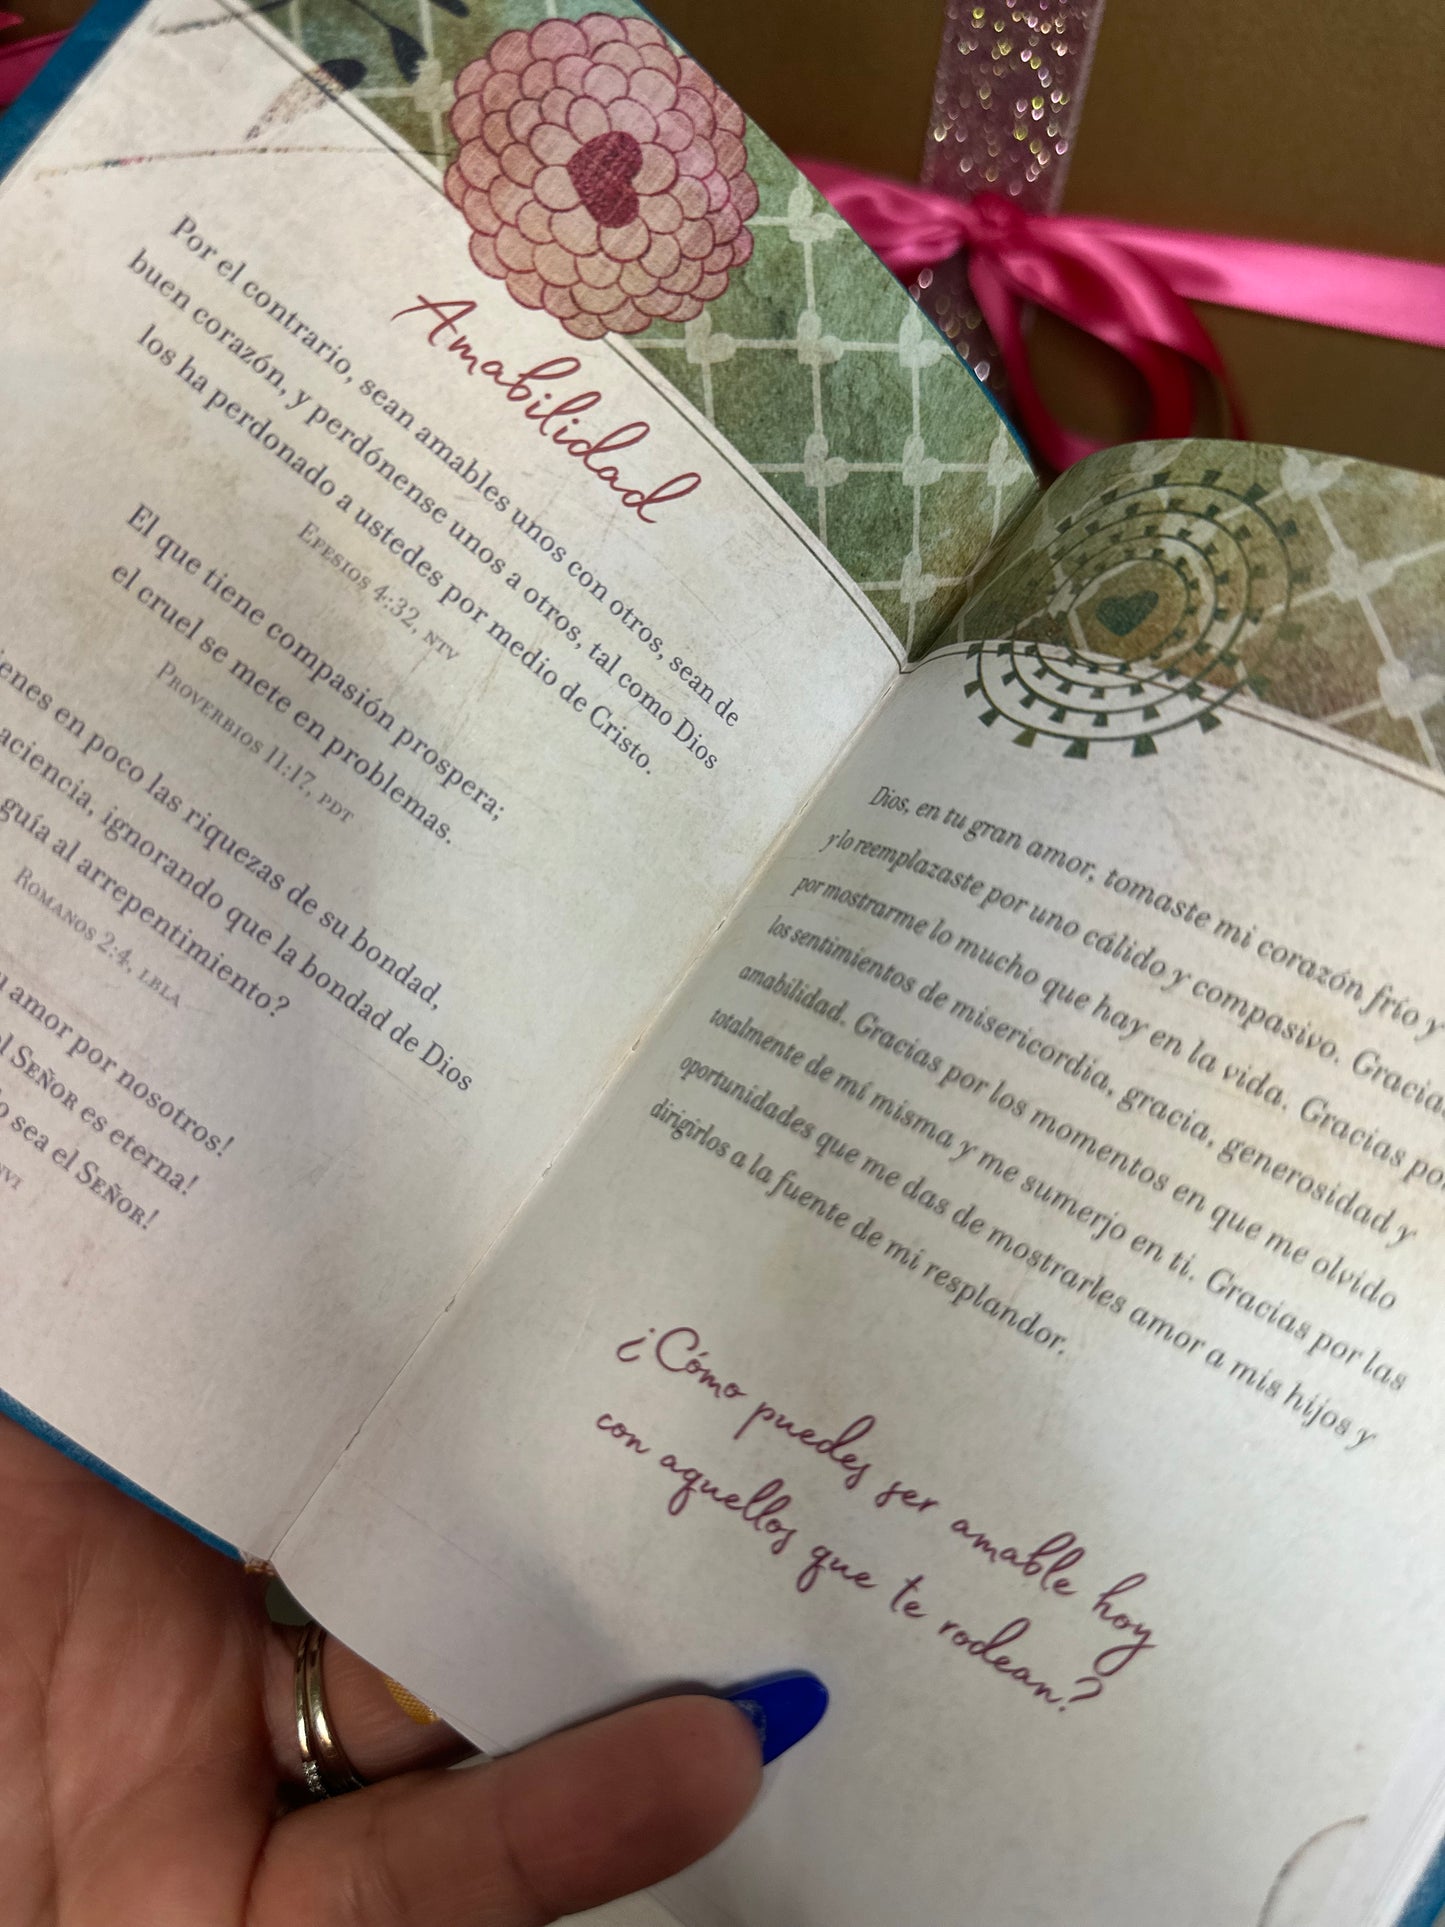 Amabilidad
Por el contrario, sean amables unos con otros, sean de
buen corazón, y perdónense unos a otros, tal como Dios
los ha perdonado a ustedes por medio de Cristo.
Efesios 4:32, NTV
El que tiene compasión prospera;
el cruel se mete en problemas.
Proverbios 11:17, PDT
en poco las riquezas de su bondad,
ignorando que la bondad de Dios
guía al arrepentimiento?
Romanos 2:4, LBLA
amor por nosotros!
Señor es eterna!
sea el Señor!
NVI
Dios, en tu gran amor, tomaste mi corazón frío y
y lo reemplazaste por uno cálido y compasivo. Gracias
por mostrarme lo mucho que hay en la vida. Gracias por
los sentimientos de misericordia, gracia, generosidad y
amabilidad. Gracias por los momentos en que me olvido
totalmente de mí misma y me sumerjo en ti. Gracias por las
oportunidades que me das de mostrarles amor a mis hijos y
dirigirlos a la fuente de mi resplandor.
¿Cómo puedes ser amable hoy
con aquellos que te rodean?